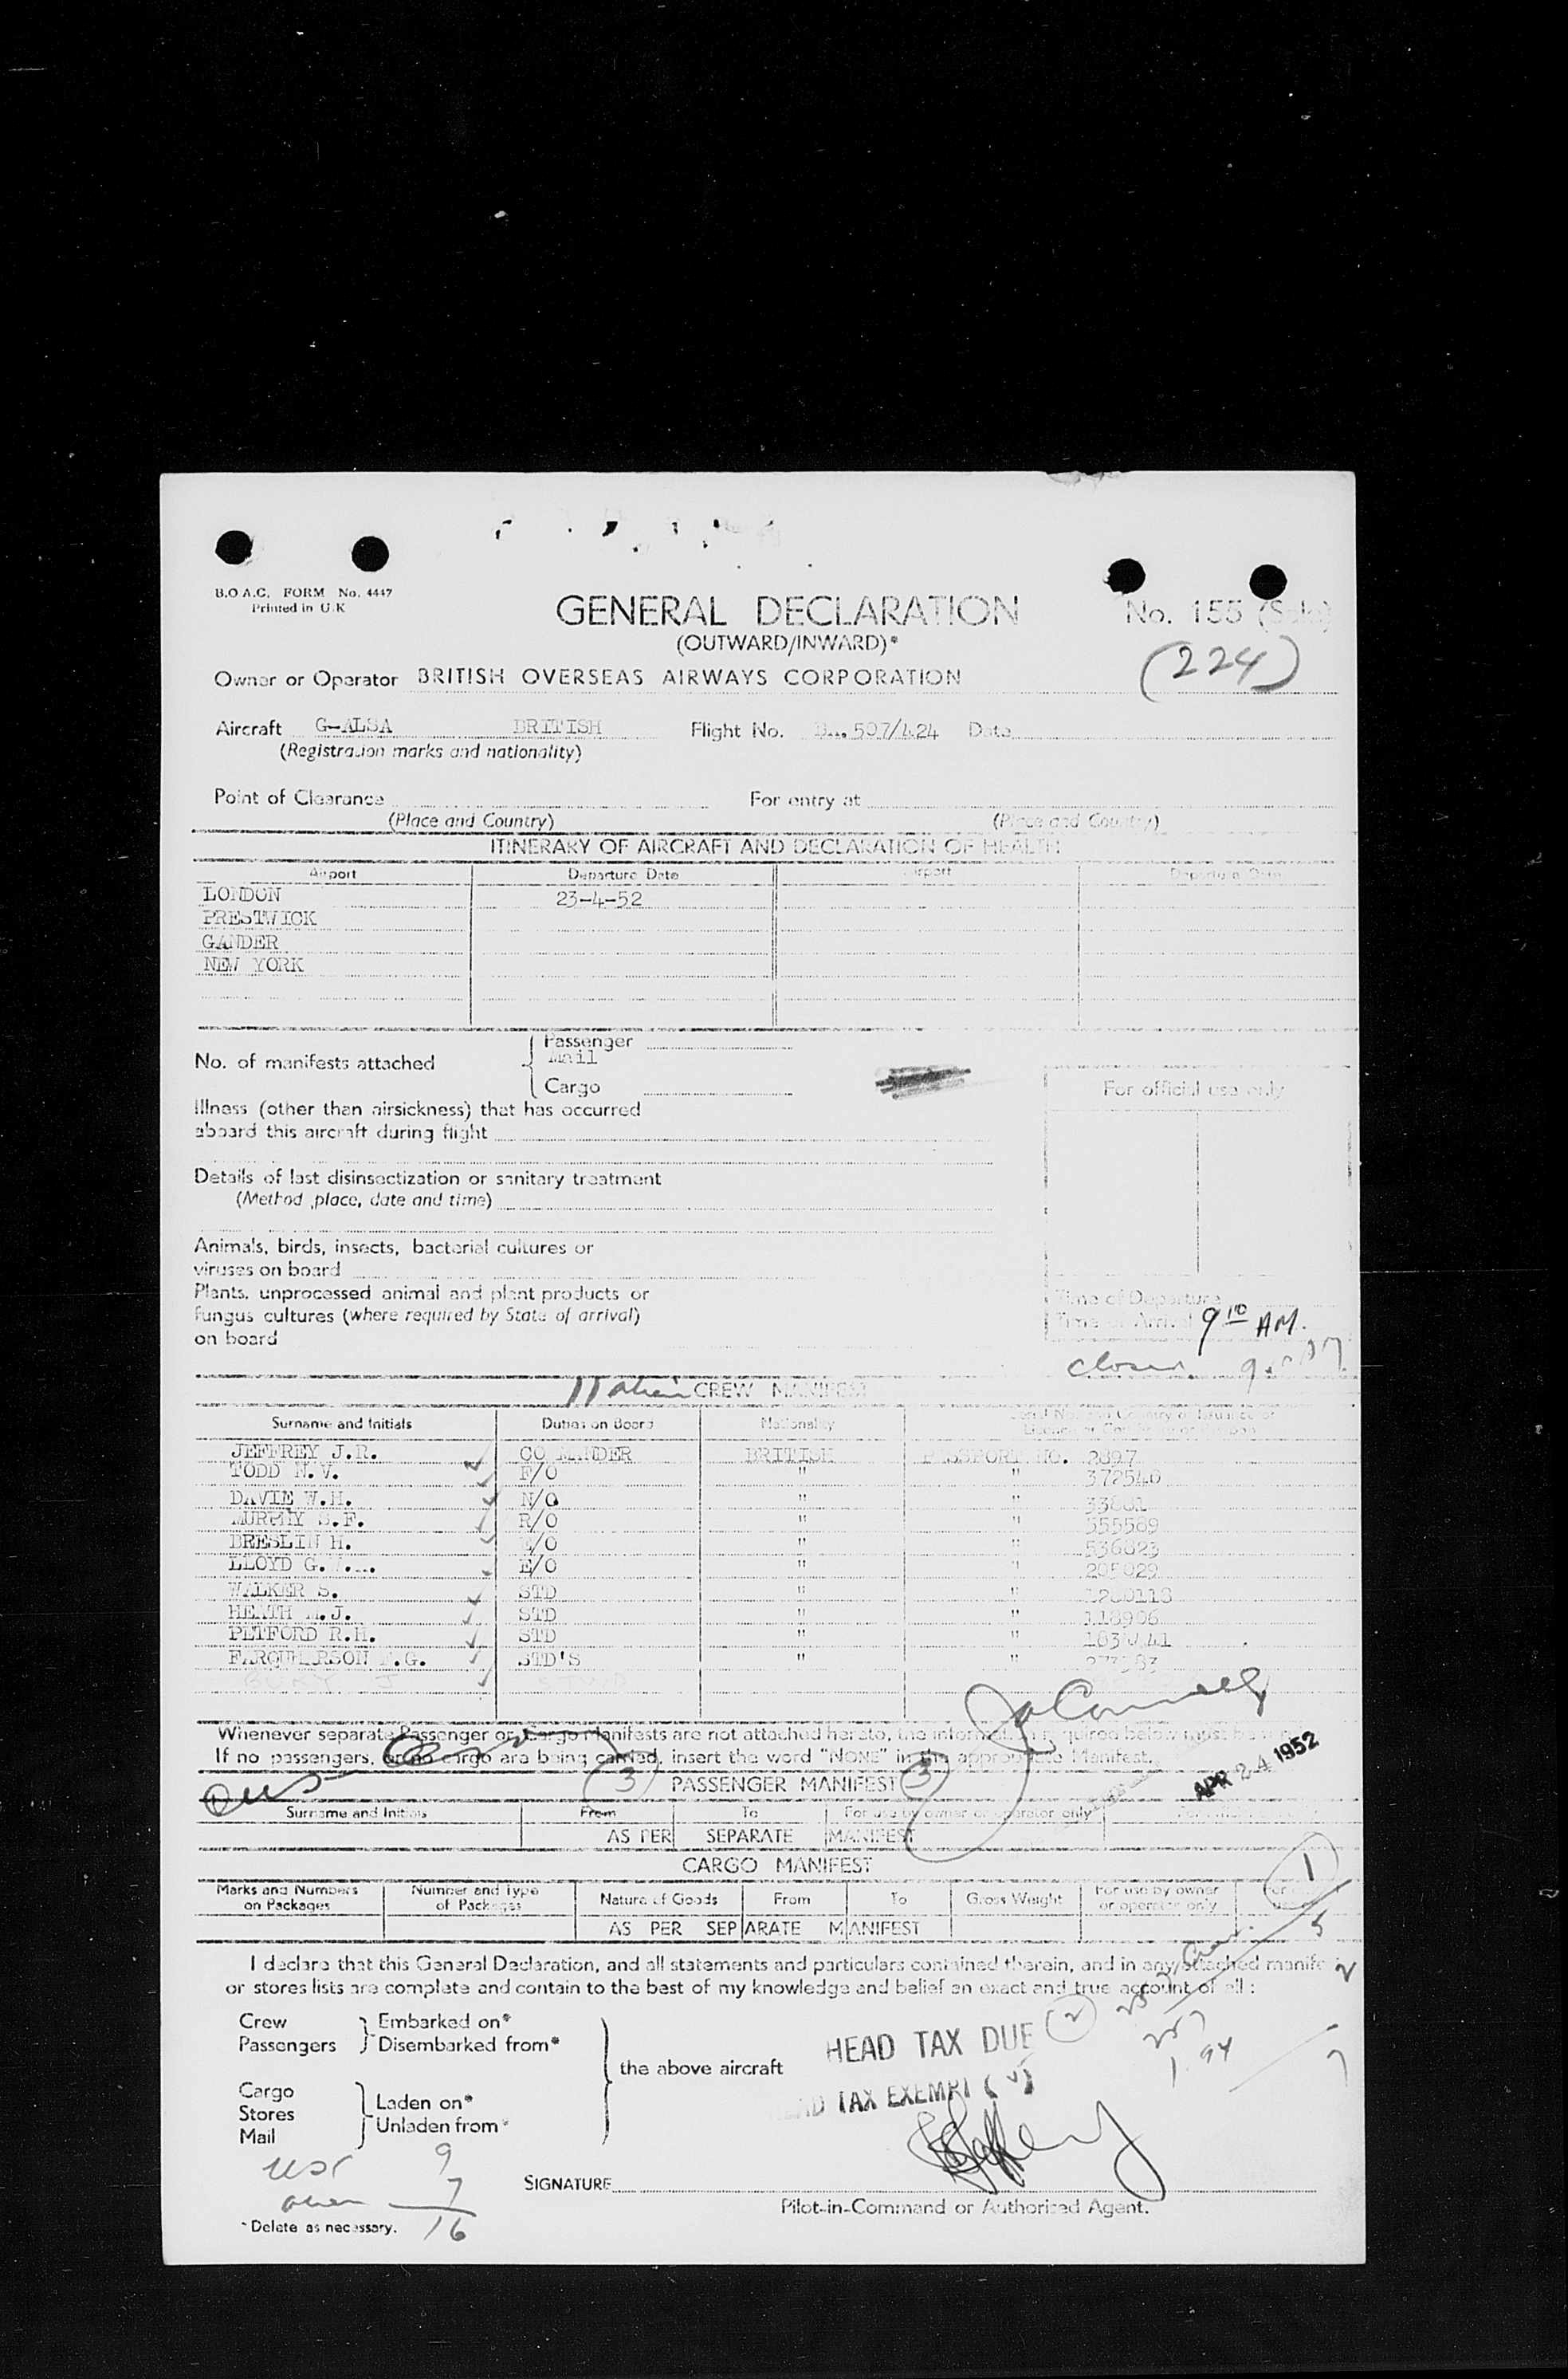 B.O.A.C. FORM No. 4447
Printed in U.K
GENERAL DECLARATION
No. 155
(OUTWARD/INWARD)*
(224)
Owner or Operator BRITISH OVERSEAS AIRWAYS CORPORATION
Aircraft G-ALSA BRITISH Flight No. BA.507/424 Date
(Registration marks and nationality)
Point of Clearance For entry at
(Place and Country) (Place and Country)
ITINERARY OF AIRCRAFT AND DECLARATION OF HEALTH
Airport Departure Date Airport Departure Date
LONDON 23-4-52
PRESTWICK
GANDER
NEW YORK
No. of manifests attached
Passenger
Mail
Cargo
For official use only
Illness (other than airsickness) that has occurred
aboard this aircraft during flight
Details of last disinsectization or sanitary treatment
(Method, place, date and time)
Animals, birds, insects, bacterial cultures or
viruses on board
Plants, unprocessed animal and plant products or
fungus cultures (where required by State of arrival)
on board
Time of Departure
Time of Arrival 9 10 AM.
11 alien CREW MANIFEST
Surname and Initials Duties on Board Nationality
JEFFREY J.R. CO MANDER BRITISH PASSPORT NO. 2897
TODD N.V. F/O " " 372548
DAVIE W.H. N/O " "
MURPHY S.F. R/O " " 555589
BRESLIN H. E/O " " 536823
LLOYD G. E/O " " 205029
WALKER S. STD " "
HEATH J. STD " " 118906
PETFORD R.H. STD " "
FARQUHARSON .G. STD'S " "
Whenever separate Passenger or Cargo Manifests are not attached hereto, the information required below must be
If no passengers, or no cargo are being carried, insert the word "NONE" in the appropriate Manifest.
APR 24 1952
(3) PASSENGER MANIFEST (3)
Surname and Initials From To For use by owner or operator only
AS PER SEPARATE MANIFEST
CARGO MANIFEST
1
Marks and Numbers on Packages Number and Type of Packages Nature of Goods From To Gross Weight For use by owner or operator only
AS PER SEPARATE MANIFEST
5
I declare that this General Declaration, and all statements and particulars contained therein, and in any attached manife
or stores lists are complete and contain to the best of my knowledge and belief an exact and true account of all :
Crew Embarked on*
Passengers Disembarked from*
the above aircraft
HEAD TAX DUE (2)
HEAD TAX EXEMPT
Cargo
Stores
Mail
Laden on*
Unladen from*
9
7
16
SIGNATURE
Pilot-in-Command or Authorised Agent.
*Delete as necessary.